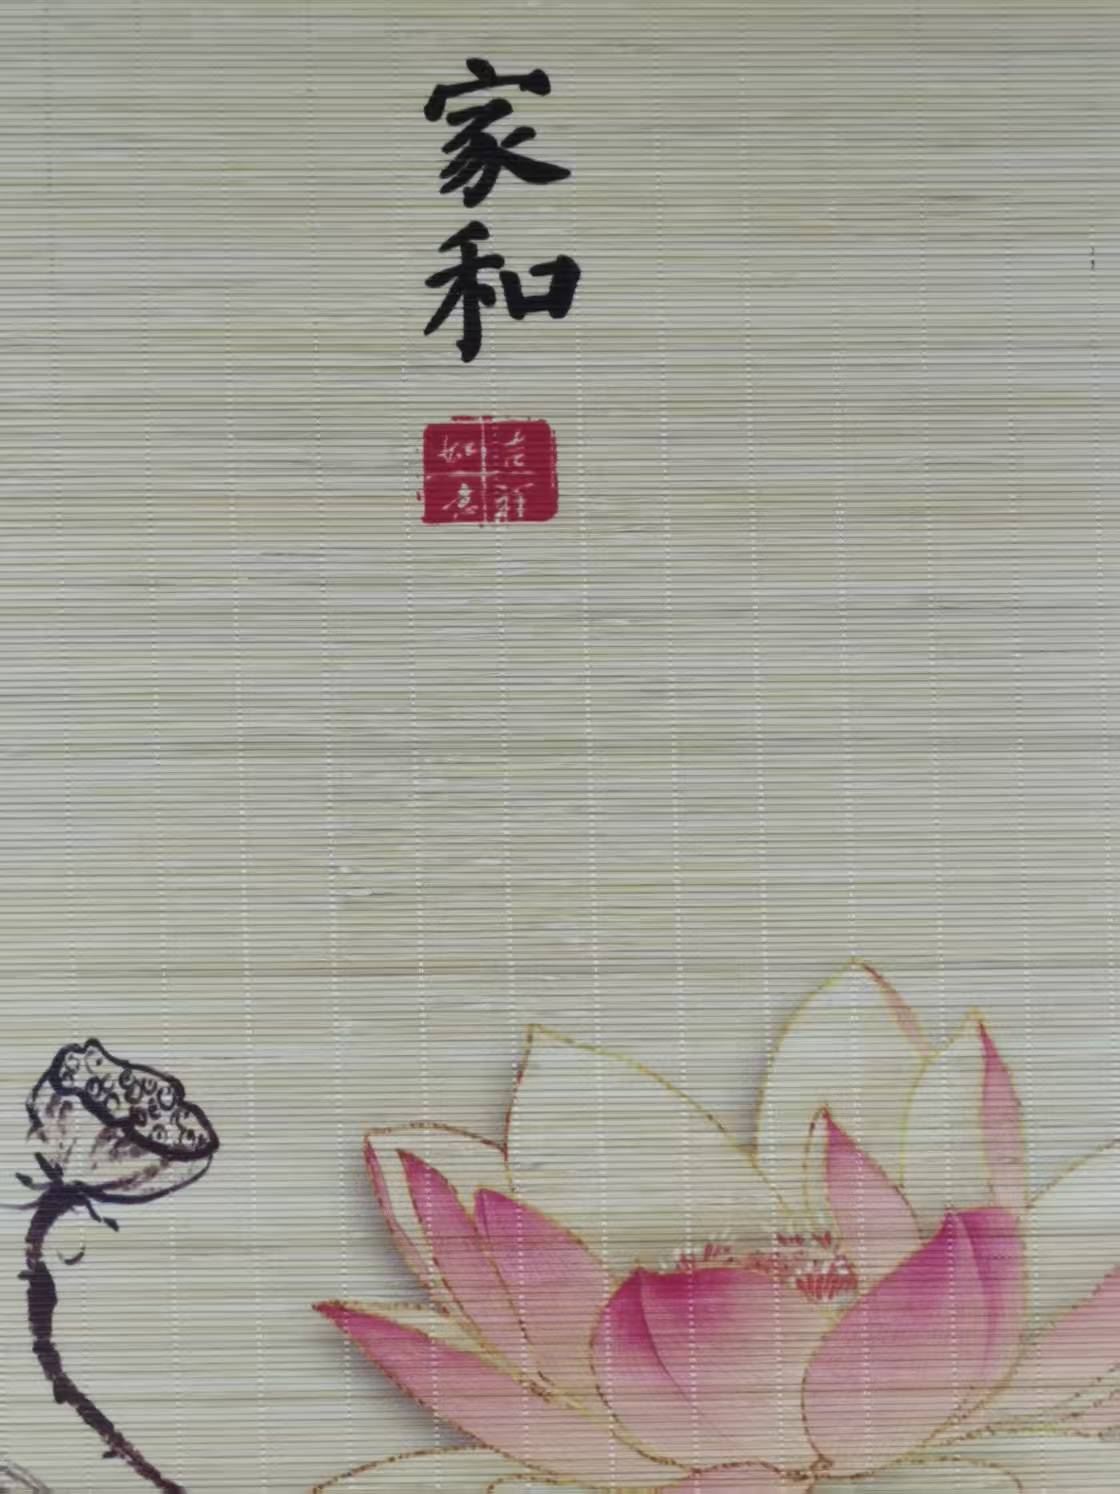 家和
吉祥
如意